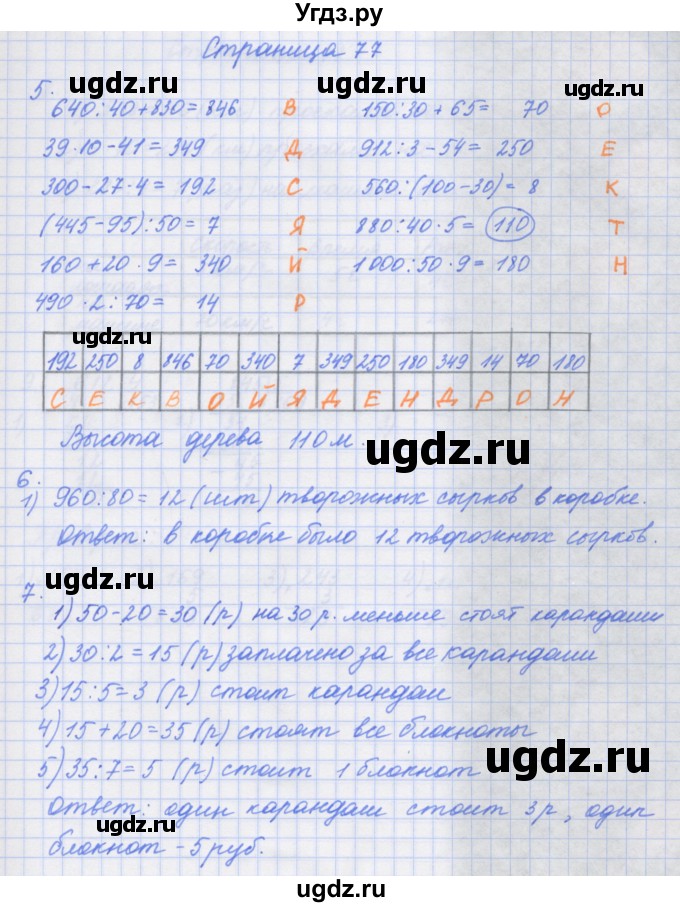 Угдз.ру
Страница 77
5.
640:40+830=846 В 150:30+65= 70 О
39·10-41=349 Д 912:3-54=250 Е
300-27·4=192 С 560:(100-30)=8 К
(445-95):50=7 Я 880:40·5=110 Т
160+20·9=340 Й 1000:50·9=180 Н
490·2:70=14 Р
192 250 8 846 70 340 7 349 250 180 349 14 70 180
С Е К В О Й Я Д Е Н Д Р О Н
Высота дерева 110 м.
6.
1) 960:80=12 (шт) творожных сырков в коробке.
Ответ: в коробке было 12 творожных сырков.
7.
1) 50-20=30 (р) на 30 р. меньше стоят карандаши
2) 30:2=15 (р) заплачено за все карандаши
3) 15:5=3 (р) стоит карандаш
4) 15+20=35 (р) стоят все блокноты
5) 35:7=5 (р) стоит 1 блокнот
Ответ: один карандаш стоит 3 р, один
блокнот - 5 руб.
ugdz.ru
ugdz.ru
ugdz.ru
ugdz.ru
ugdz.ru
ugdz.ru
ugdz.ru
ugdz.ru
ugdz.ru
ugdz.ru